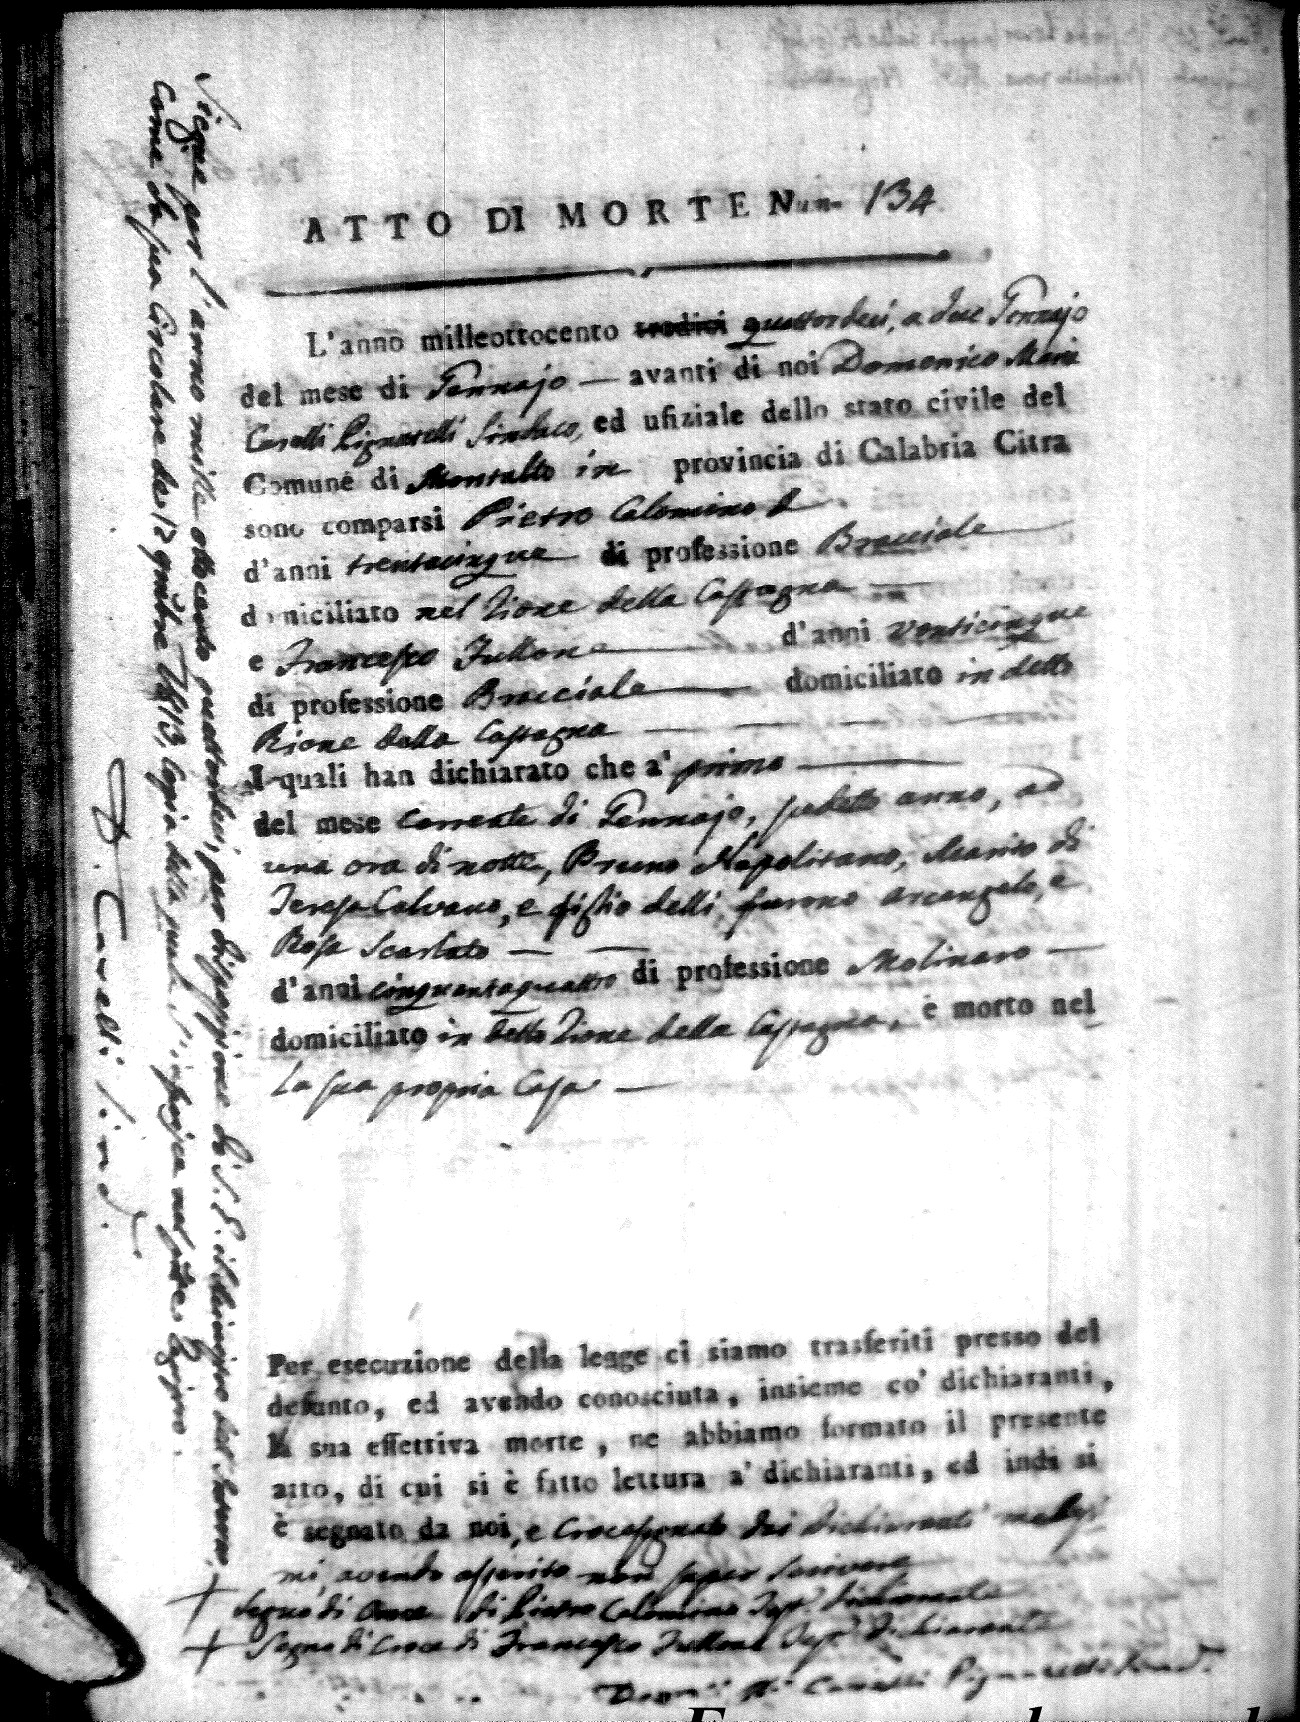 ATTO DI MORTE Num. 134
L'anno milleottocento tredici quattordeci, a due Gennajo
del mese di Gennajo — avanti di noi Domenico Maria
Cavalli Pignatelli Sindaco, ed ufiziale dello stato civile del
Comune di Montalto in provincia di Calabria Citra
sono comparsi Pietro Calomino
d'anni trentacinque di professione Bracciale
domiciliato nel Rione della Castagna
e Francesco Fullone d'anni venticinque
di professione Bracciale domiciliato in detto
Rione della Castagna
I quali han dichiarato che a' primo
del mese corrente di Gennajo, sudetto anno, ad
una ora di notte, Bruno Napolitano, Marito di
Teresa Calvano, e figlio delli furono Arcangelo, e
Rosa Scarlato
d'anni cinquantaquattro di professione Molinaro
domiciliato in detto Rione della Castagna, è morto nel
La sua propria Casa
Per esecuzione della legge ci siamo trasferiti presso del
defunto, ed avendo conosciuta, insieme co' dichiaranti,
la sua effettiva morte, ne abbiamo formato il presente
atto, di cui si è fatto lettura a' dichiaranti, ed indi si
è segnato da noi, e Crocesegnato dai dichiaranti medesi
mi, avendo asserito non saper scrivere
+ Segno di Croce di Pietro Calomino Dichiarante
+ Segno di Croce di Francesco Fullone Dichiarante
Cavalli Pignatelli Sind.
per l'anno mille ottocento quattordeci, giusta disposizione di S. E. il Ministro dell'Interno
come da sua Circolare de' 12 1813, Copia della quale si
D. Cavalli Sind.